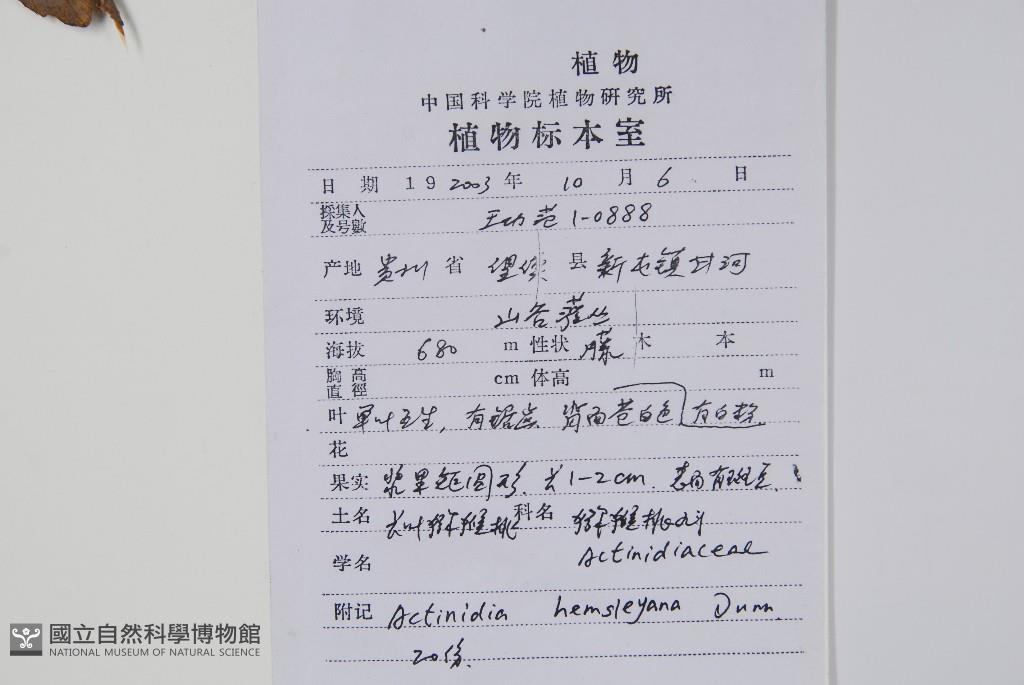 植物
中国科学院植物研究所
植物标本室
日期 19 2003 年 10 月 6 日
採集人及号數 王功范 1-0888
产地 贵州 省 望 县 新屯镇 河
环境 山谷灌丛
海拔 680 m 性状 藤 木 本
胸高直徑 cm 体高 m
叶 单叶互生, 有锯齿. 背面苍白色 有白粉.
花
果实 浆果矩圆形. 长1-2cm. 表面有斑点.
土名 长叶猕猴桃 科名 猕猴桃科
学名 Actinidiaceae
附记 Actinidia hemsleyana Dunn.
20份.
國立自然科學博物館
NATIONAL MUSEUM OF NATURAL SCIENCE